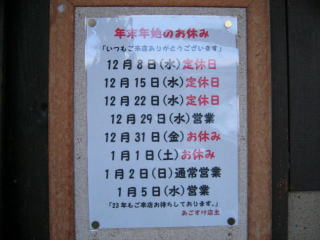 年末年始のお休み
「いつもご来店ありがとうございます」
12月8日(水)定休日
12月15日(水)定休日
12月22日(水)定休日
12月29日(水)営業
12月31日(金)お休み
1月1日(土)お休み
1月2日(日)通常営業
1月5日(水)営業
「23年もご来店お待ちしております。」
あごすけ店主